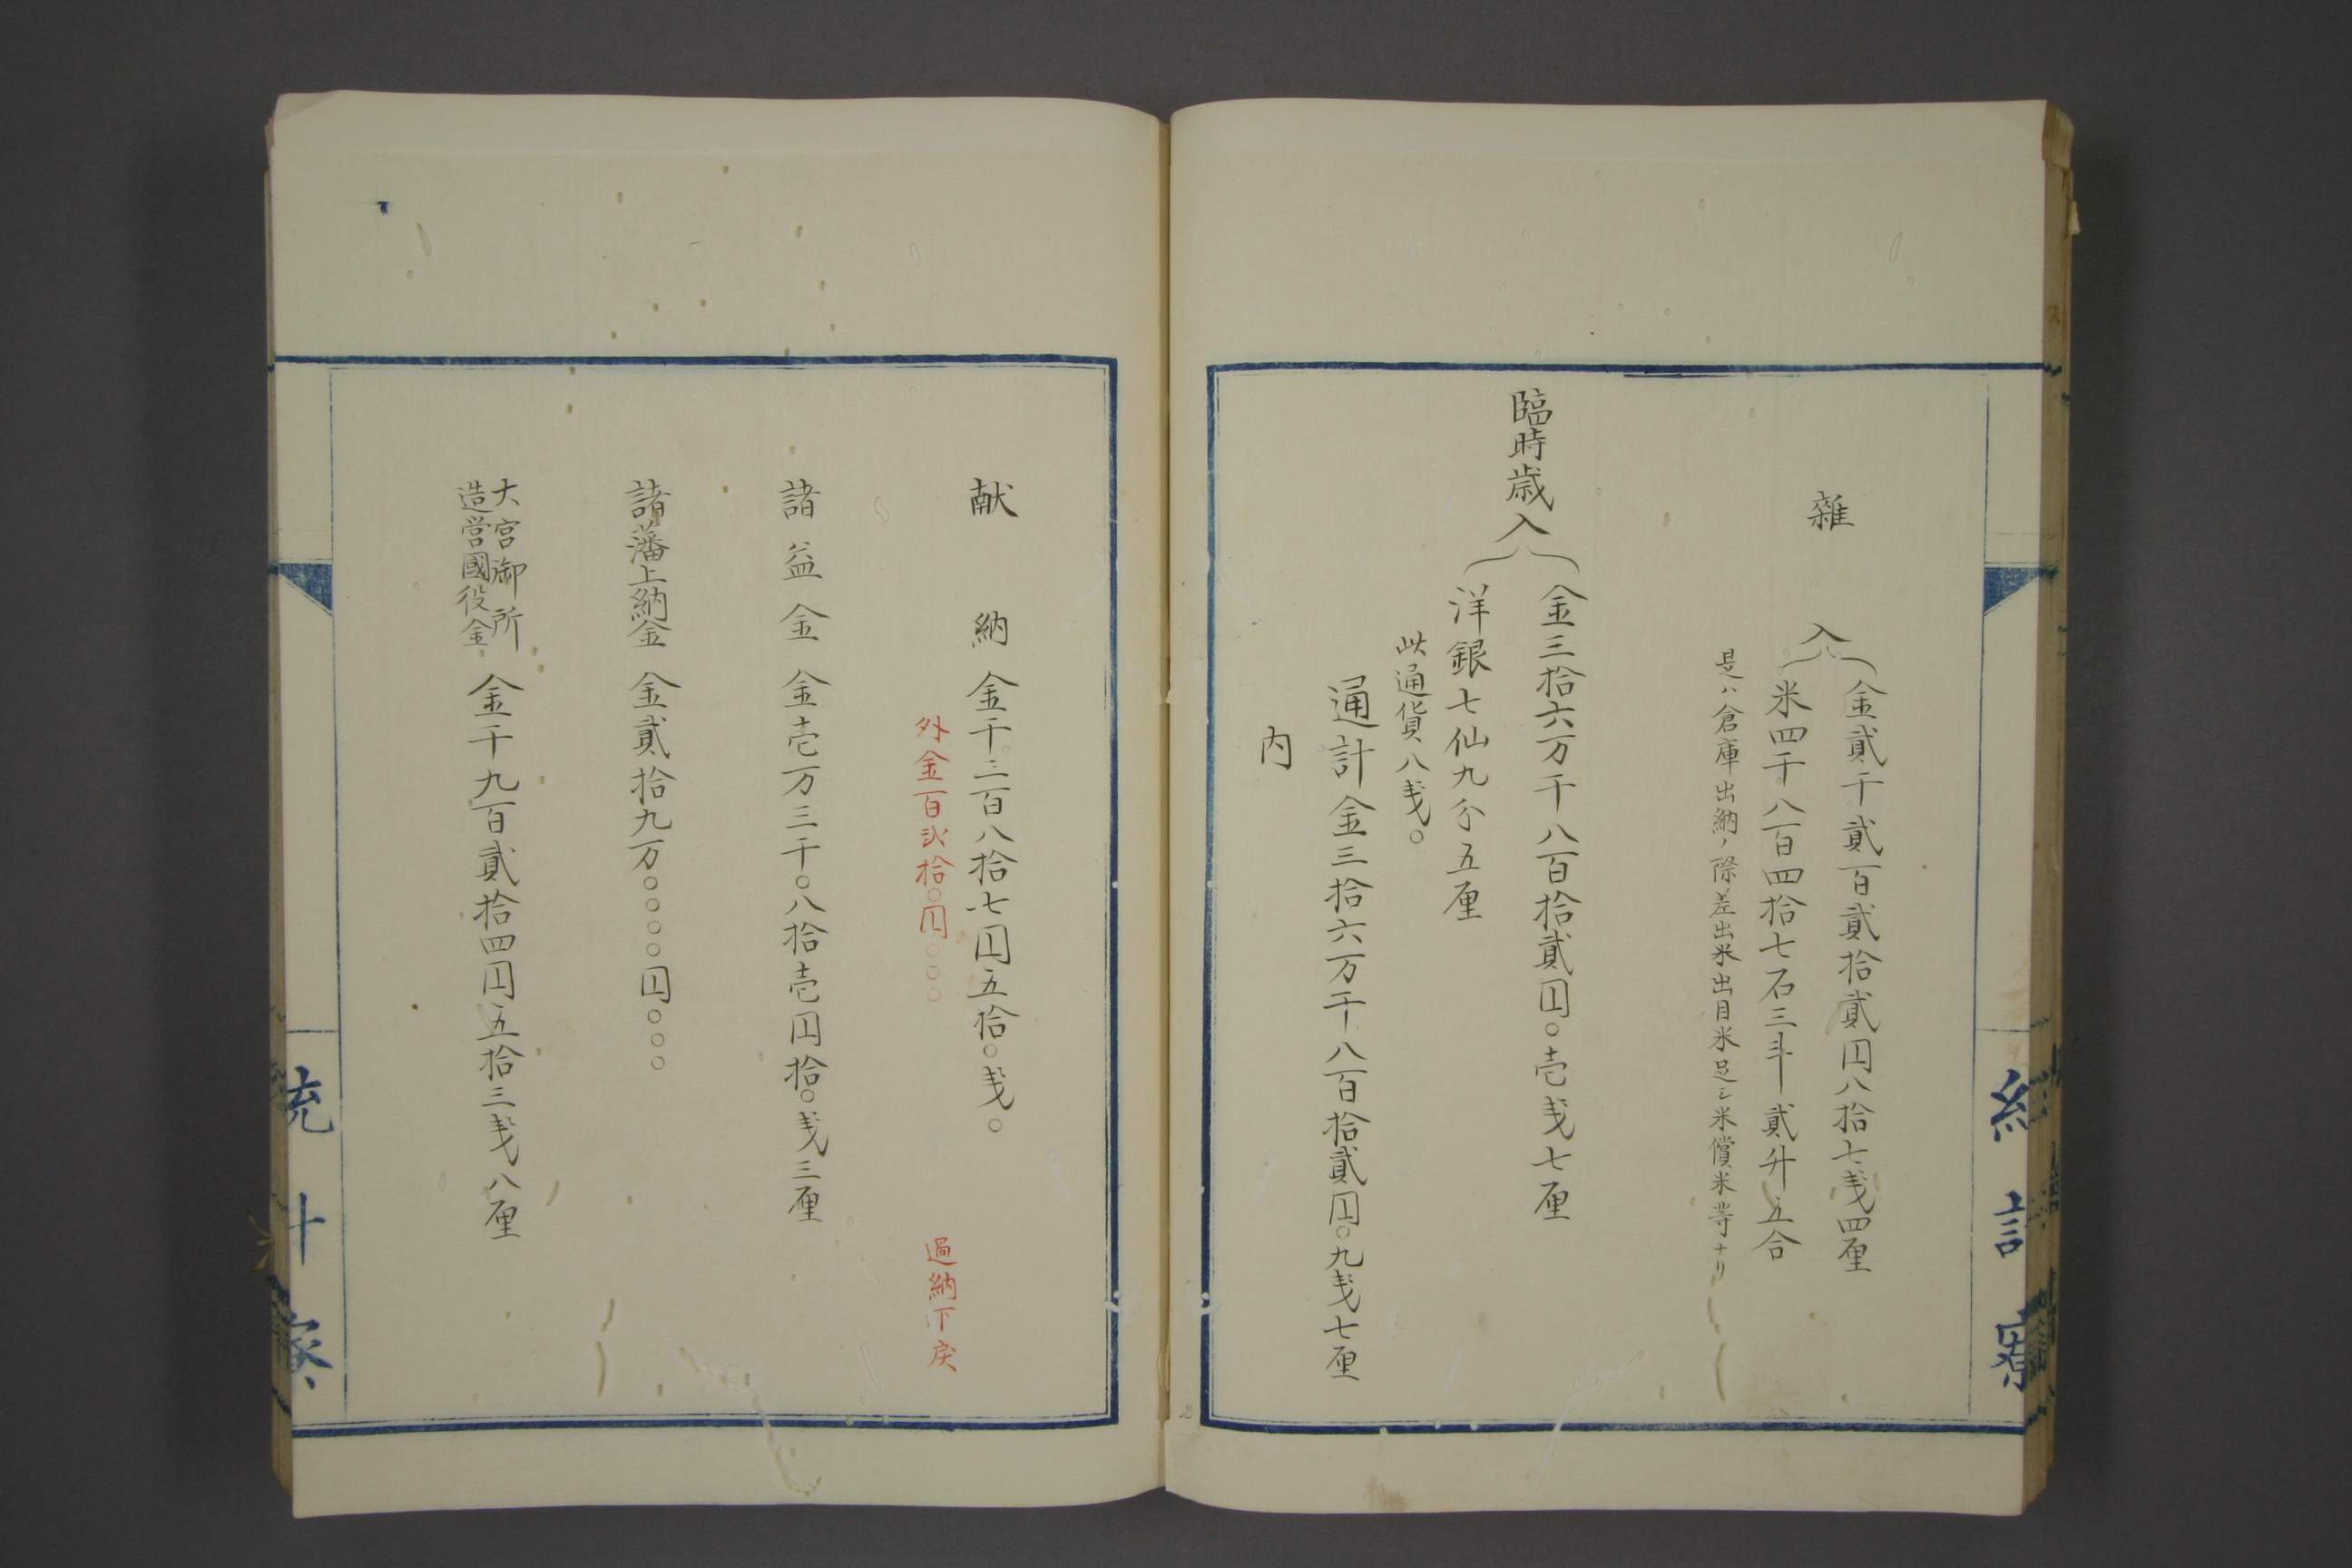 雜入
金貳千貳百貳拾貳円八拾七戔四厘
米四千八百四拾七石三斗貳升五合
是ハ倉庫出納ノ際差出米出目米足シ米償米等ナリ
臨時歳入
金三拾六万千八百拾貳円。壱戔七厘
洋銀七仙九分五厘
此通貨八戔。
通計金三拾六万千八百拾貳円。九戔七厘
内
献納 金千三百八拾七円五拾。戔。
外金百弐拾。円。。。 過納下戻
諸益金 金壱万三千。八拾壱円拾。戔三厘
諸藩上納金 金貳拾九万。。。。円。。。
大宮御所
造営國役金 金千九百貳拾四円五拾三戔八厘
統計寮